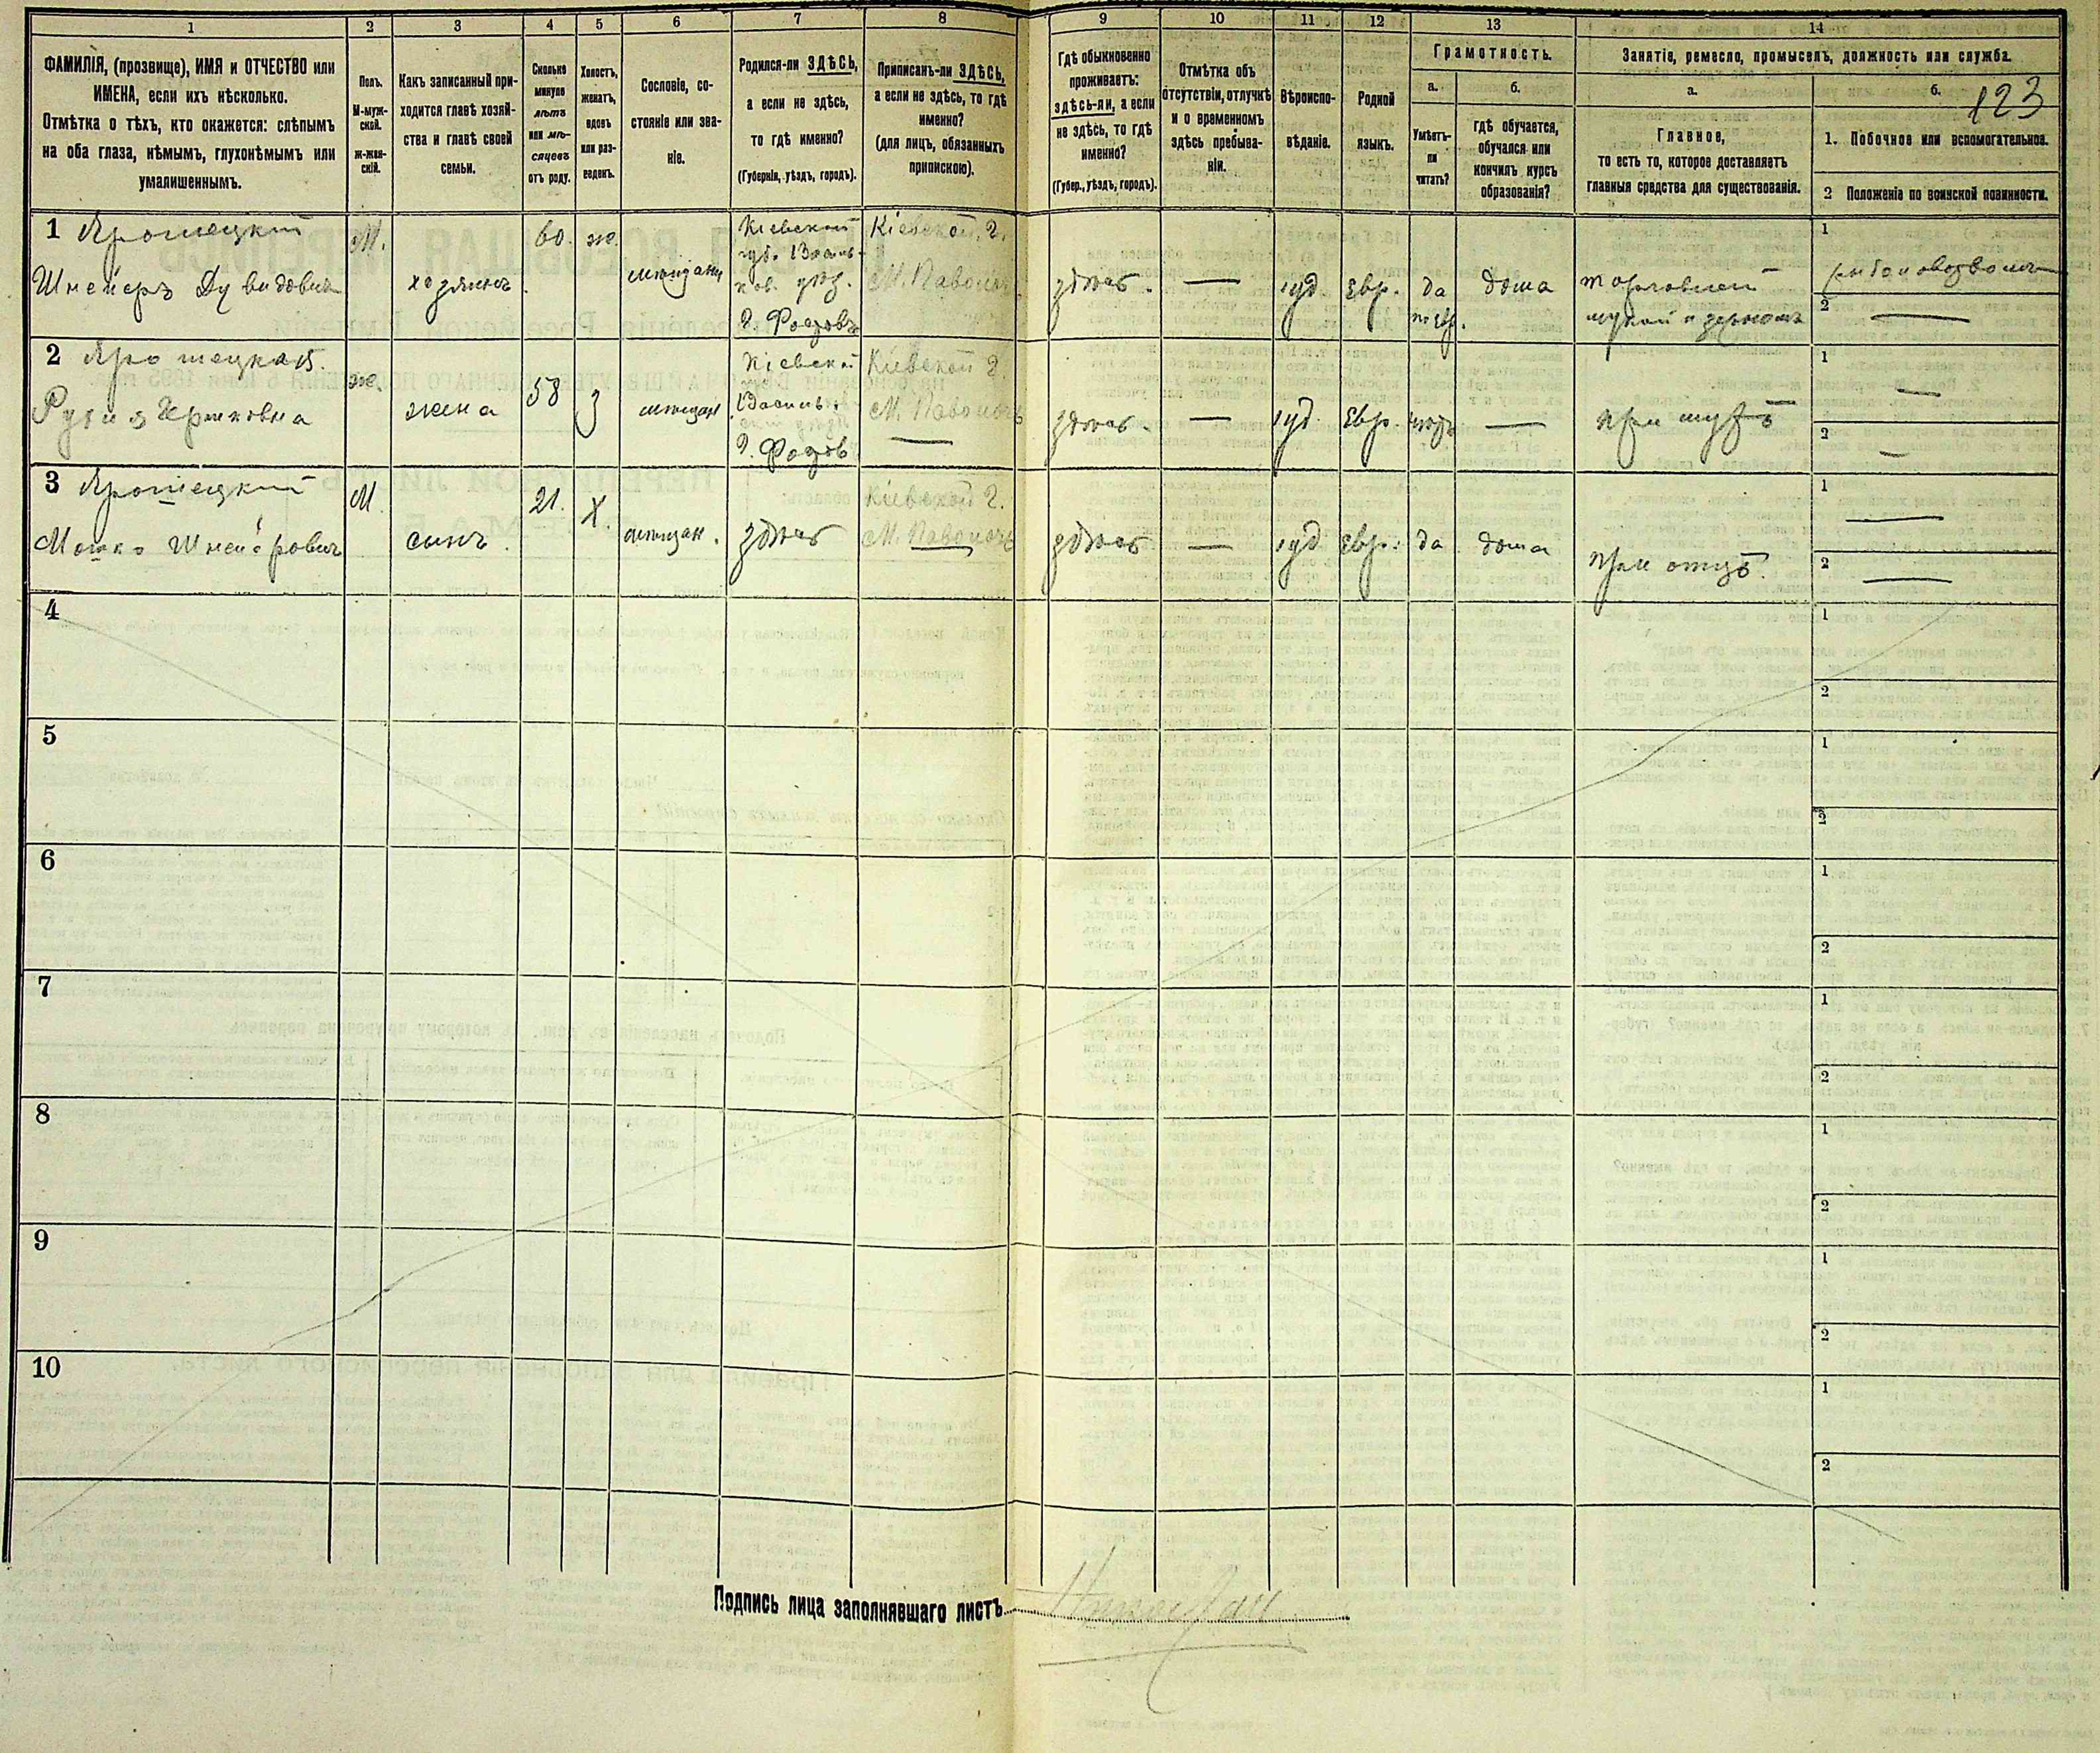 1 2 3 4 5 6 7 8 9 10 11 12 13 14
ФАМИЛІЯ, (прозвище), ИМЯ и ОТЧЕСТВО или
ИМЕНА, если ихъ нѣсколько.
Отмѣтка о тѣхъ, кто окажется: слѣпымъ
на оба глаза, нѣмымъ, глухонѣмымъ или
умалишеннымъ.
Полъ.
М-муж-
ской.
ж-жен-
скій.
Какъ записанный при-
ходится главѣ хозяй-
ства и главѣ своей
семьи.
Сколько
минуло
лѣтъ
или мѣ-
сяцевъ
отъ роду.
Холостъ,
женатъ,
вдовъ
или раз-
веденъ.
Сословіе, со-
стояніе или зва-
ніе.
Родился-ли ЗДѢСЬ,
а если не здѣсь,
то гдѣ именно?
(Губернія, уѣздъ, городъ).
Приписанъ-ли ЗДѢСЬ,
а если не здѣсь, то гдѣ
именно?
(для лицъ, обязанныхъ
припискою).
Гдѣ обыкновенно
проживаетъ:
здѣсь-ли, а если
не здѣсь, то гдѣ
именно?
(Губер., уѣздъ, городъ).
Отмѣтка объ
отсутствіи, отлучкѣ
и о временномъ
здѣсь пребыва-
ніи.
Вѣроиспо-
вѣданіе.
Родной
языкъ.
Грамотность.
а.
Умѣетъ-
ли
читать?
б.
гдѣ обучается,
обучался или
кончилъ курсъ
образованія?
Занятіе, ремесло, промыселъ, должность или служба.
а.
Главное,
то есть то, которое доставляетъ
главныя средства для существованія.
б.
123
1. Побочное или вспомогательное.
2 Положеніе по воинской повинности.
1
Шнейеръ Дувидовичъ
М.
хозяинъ
60.
ж.
мещанин
Кіевской
губ.
Кіевской г.
здѣсь.
—
іуд
Евр.
да
по Евр.
дома
торговлей
мукой и зерномъ
1
2 —
2
ж.
жена
58
З
мещан
Кіевской
Кіевской г.
—
здѣсь.
—
іуд
Евр.
—
при мужѣ
1 —
2 —
3
Мошко Шнейеровичъ
М
сынъ.
21.
Х.
мещан.
здѣсь
Кіевской г.
здѣсь
—
іуд
Евр.
да
дома
при отцѣ.
1 —
2 —
4
1
2
5
1
2
6
1
2
7
1
2
8
1
2
9
1
2
10
1
2
Подпись лица заполнявшаго листъ